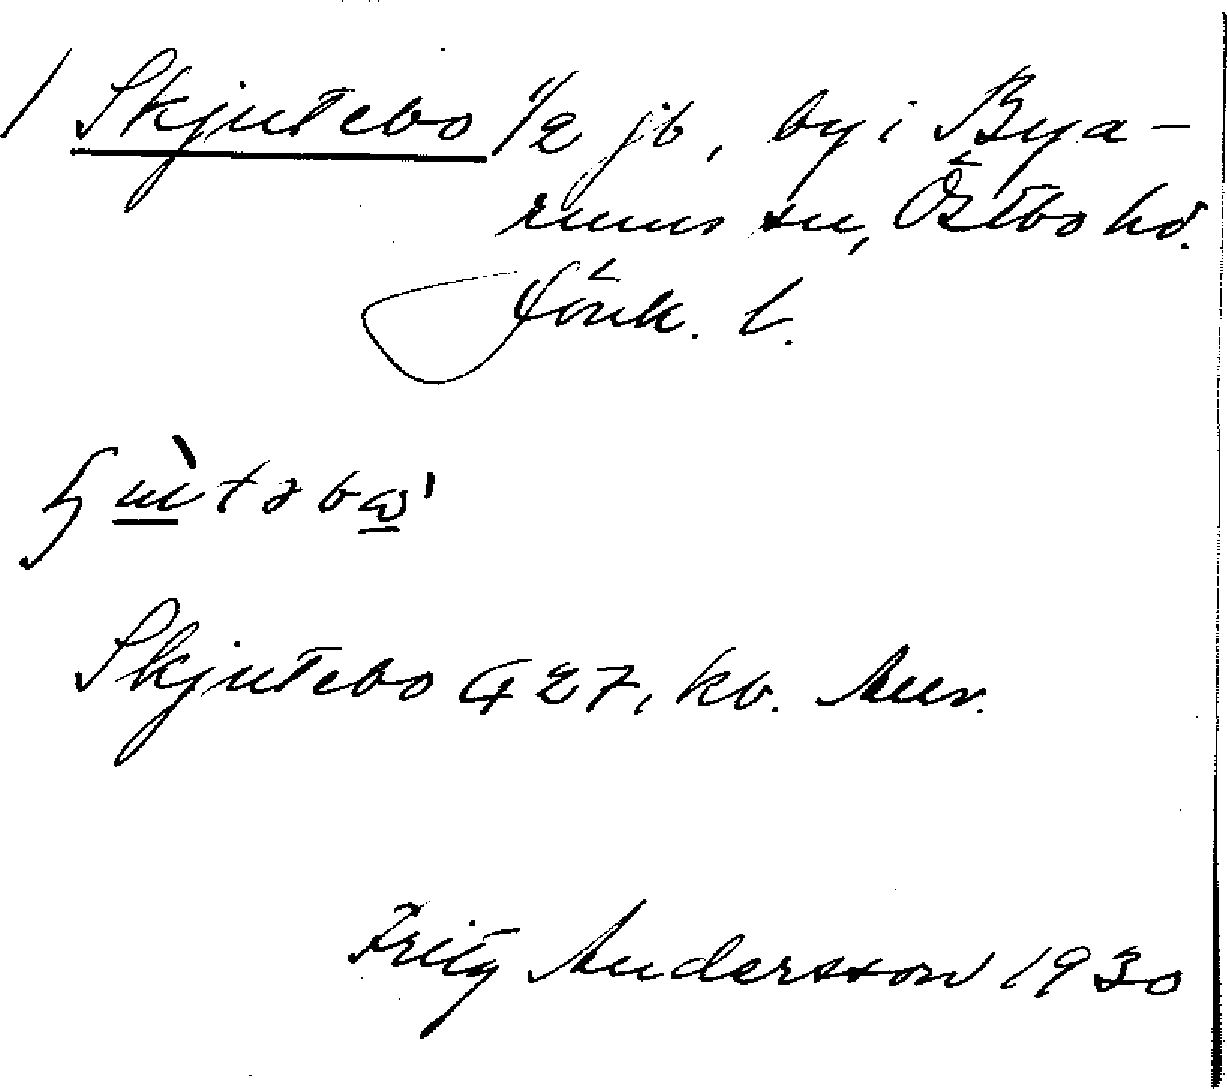 / Skjutebo 1/2 jb, by i Bya-
rums sn, Östbo hd.
Jönk. l.
ɧùtəbω'
Skjutebo G 27, kb. Anr.
Fritz Andersson 1930